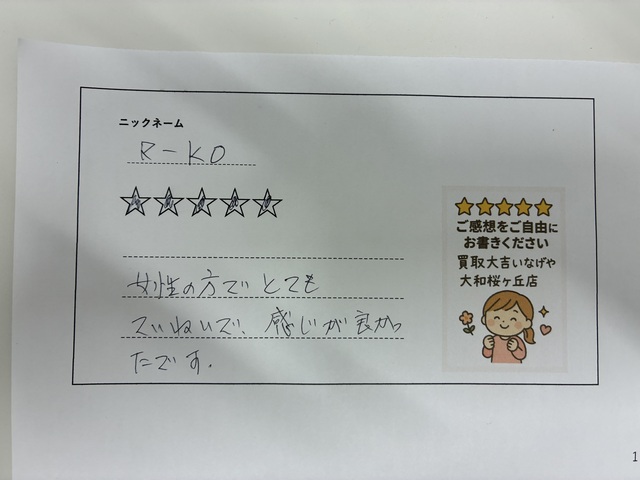 ニックネーム
R-KO
女性の方でとても
ていねいで、感じが良かっ
たです.
ご感想をご自由に
お書きください
買取大吉いなげや
大和桜ヶ丘店
1